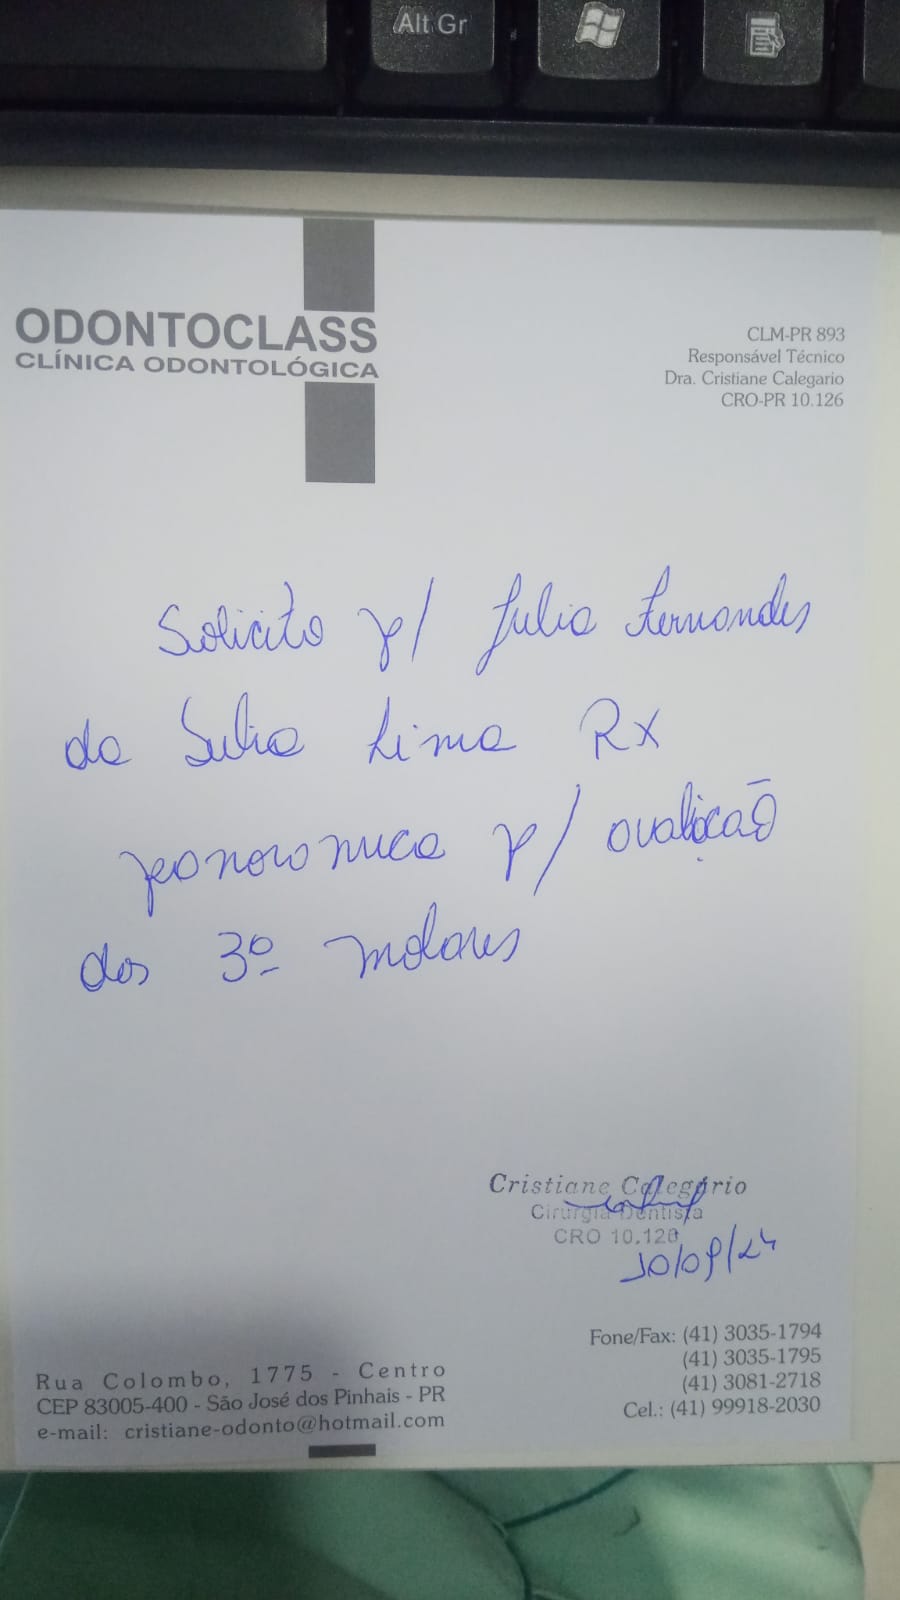 Alt Gr
ODONTOCLASS
CLÍNICA ODONTOLÓGICA
CLM-PR 893
Responsável Técnico
Dra. Cristiane Calegario
CRO-PR 10.126
Solicito p/ Julia Fernandes
da Silva Lima Rx
panoramica p/ avaliação
dos 3º molares
Cristiane Calegário
Cirurgiã Dentista
CRO 10.126
10/09/24
Rua Colombo, 1775 - Centro
CEP 83005-400 - São José dos Pinhais - PR
e-mail: cristiane-odonto@hotmail.com
Fone/Fax: (41) 3035-1794
(41) 3035-1795
(41) 3081-2718
Cel.: (41) 99918-2030